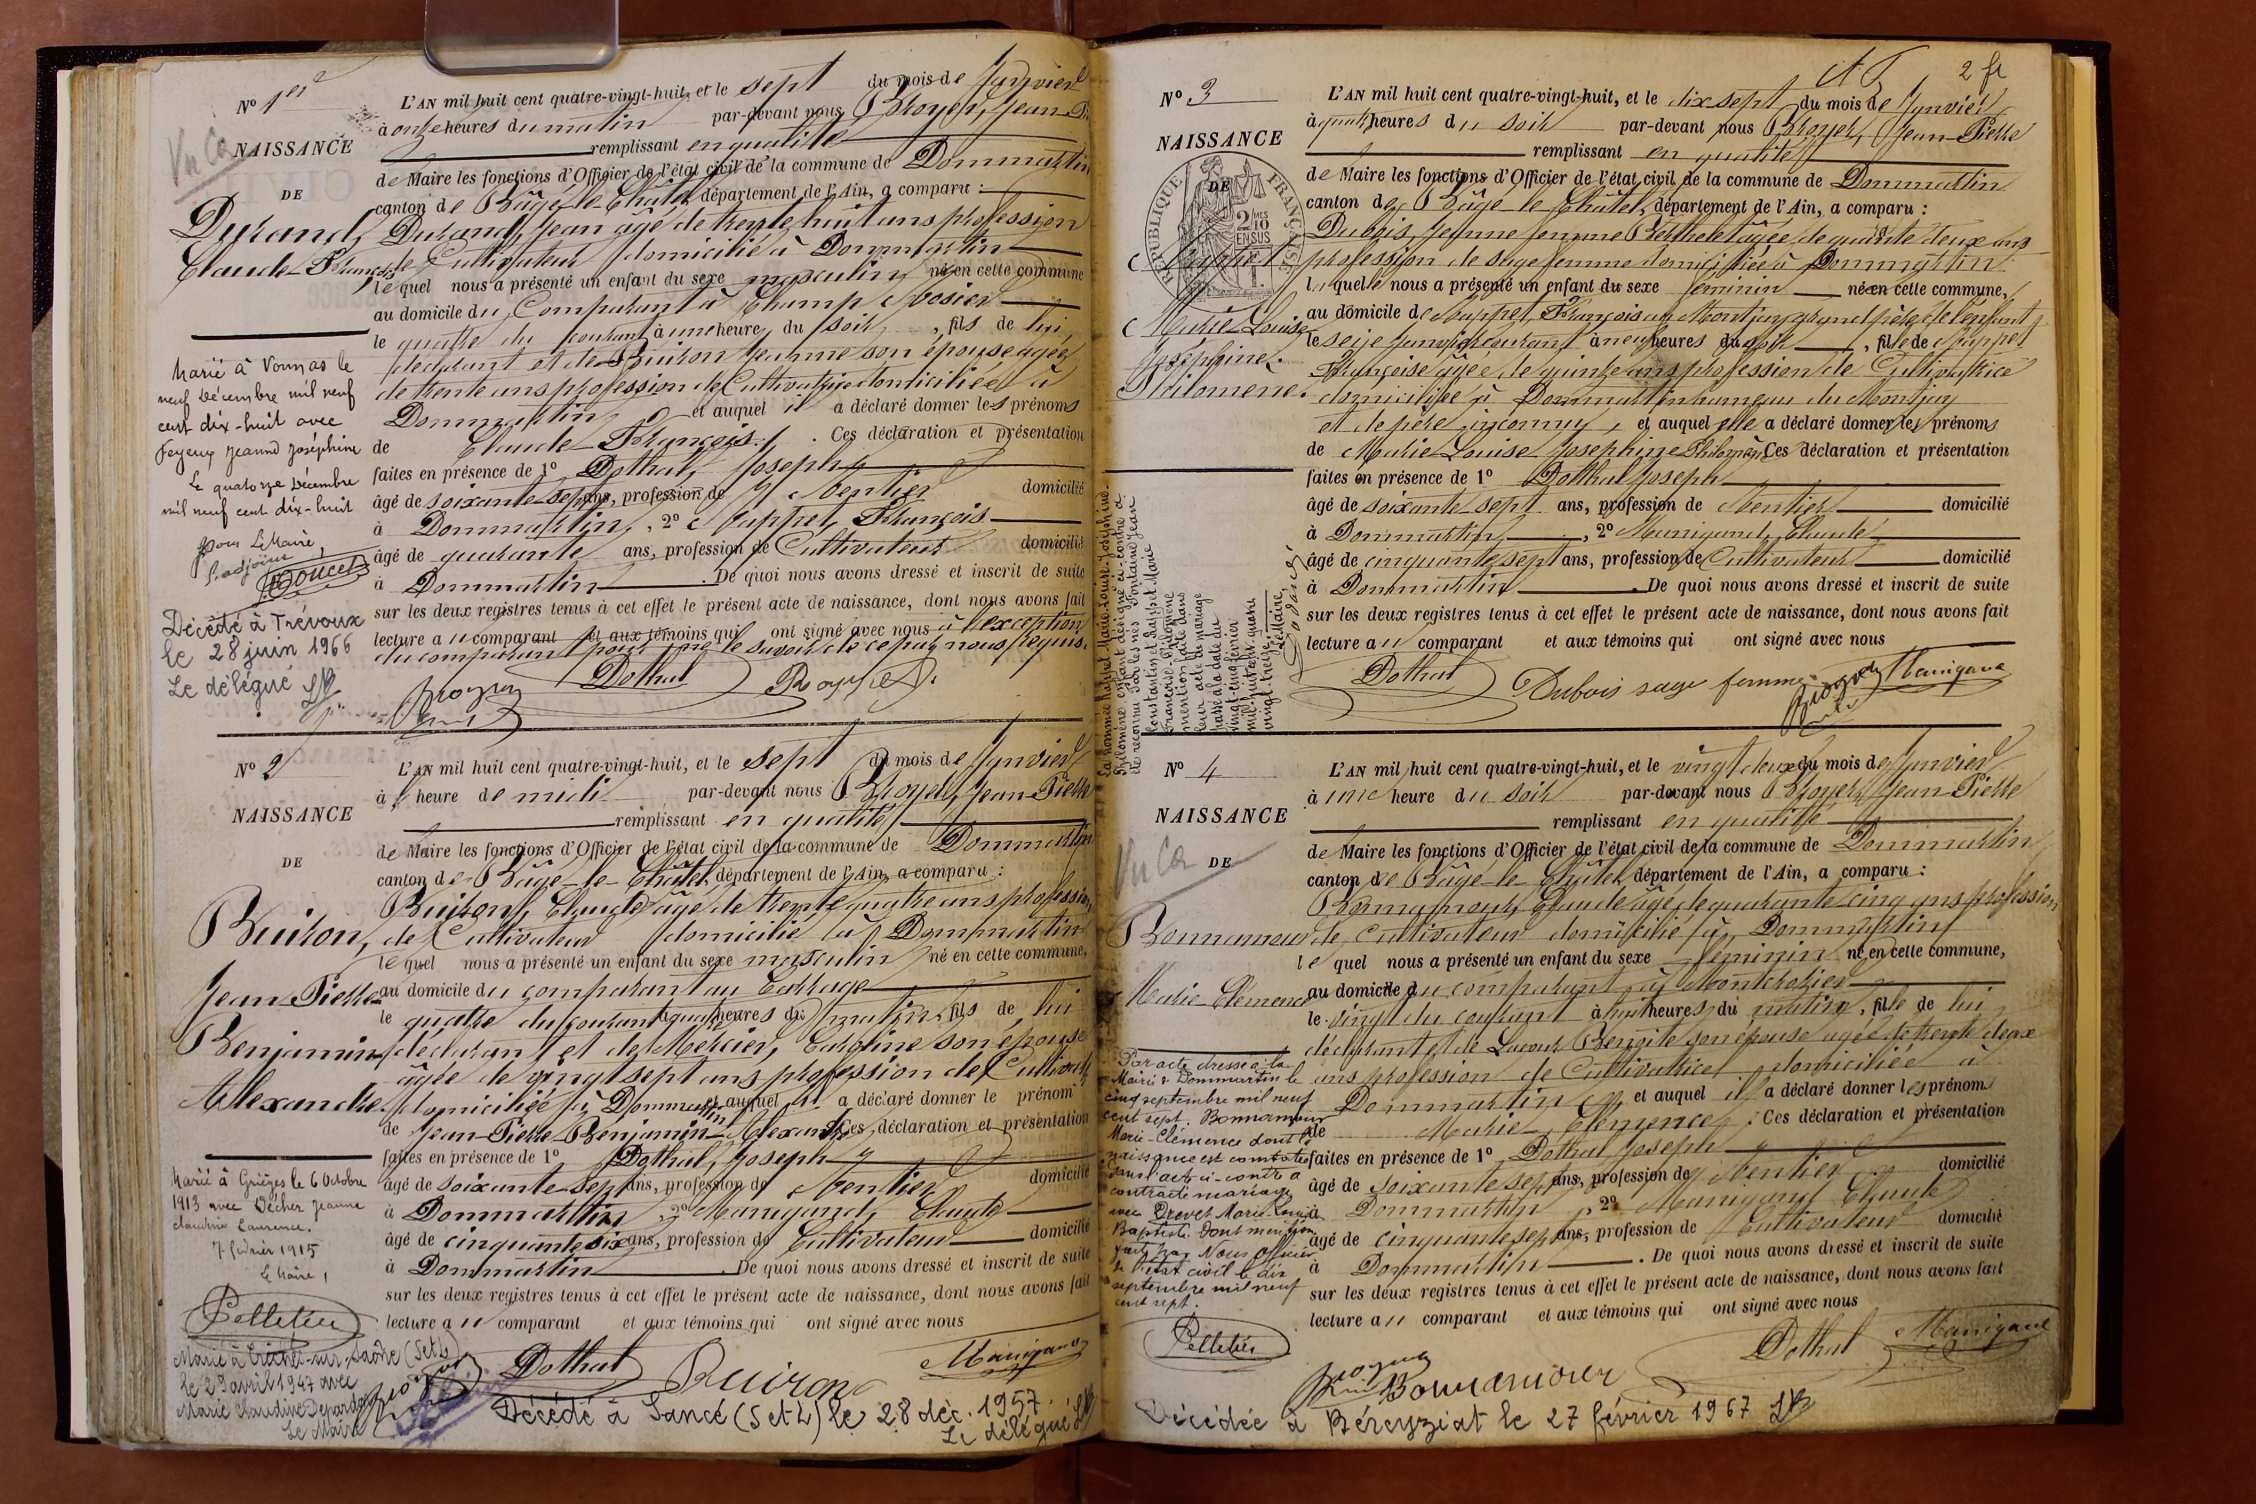 N° 1er
NAISSANCE
DE
Durand,
Claude-François
Vu Ca
L'AN mil huit cent quatre-vingt-huit, et le sept du mois de Janvier
à onze heures du matin par-devant nous Broyer, Jean-Pi
remplissant en qualité
de Maire les fonctions d'Officier de l'état civil de la commune de Dommartin
canton de Bâgé-le-Châtel, département de l'Ain, a comparu :
Durand, Jean âgé de trente huit ans profession
de Cultivateur domicilié à Dommartin
lequel nous a présenté un enfant du sexe masculin né en cette commune
au domicile du Comparant à Champ
le quatre du courant à une heure du soir, fils de lui
déclarant et de Buiron Jeanne son épouse agée
de trente ans profession de Cultivatrice domiciliée à
Dommartin et auquel il a déclaré donner les prénoms
de Claude-François. Ces déclaration et présentation
faites en présence de 1° Dothal, Joseph
âgé de soixante-sept ans, profession de Rentier domicilié
à Dommartin, 2° Rappet, François
âgé de quarante ans, profession de Cultivateur domicilié
à Dommartin De quoi nous avons dressé et inscrit de suite
sur les deux registres tenus à cet effet le présent acte de naissance, dont nous avons fait
lecture au comparant et aux témoins qui ont signé avec nous à l'exception
du comparant pour ne le savoir de ce par nous requis.
Broyer Dothal Rappet
Marié à Vonnas le
neuf Décembre mil neuf
cent dix-huit avec
Feyeux Jeanne Joséphine
Le quatorze Décembre
mil neuf cent dix-huit
Pour Le Maire,
L'adjoint
Doucet
Décédé à Trévoux
le 28 juin 1966
Le délégué
N° 2
NAISSANCE
DE
Buiron,
Jean-Pierre
Benjamin
Alexandre.
L'AN mil huit cent quatre-vingt-huit, et le sept du mois de Janvier
à l'heure de midi par-devant nous Broyer, Jean-Pierre
remplissant en qualité
de Maire les fonctions d'Officier de l'état civil de la commune de Dommartin
canton de Bâgé-le-Châtel, département de l'Ain, a comparu :
Buiron, Claude âgé de trente quatre ans profession
de Cultivateur domicilié à Dommartin
lequel nous a présenté un enfant du sexe masculin né en cette commune,
au domicile du comparant au
le quatre du courant à quatre heures du matin, fils de lui
déclarant et de Mercier, Caroline son épouse
âgée de vingt sept ans profession de Cultivatrice
domiciliée à Dommartin et auquel il a déclaré donner le prénom
de Jean-Pierre Benjamin Alexandre Ces déclaration et présentation
faites en présence de 1° Dothal, Joseph
âgé de soixante-sept ans, profession de Rentier domicilié
à Dommartin, 2° Manigand, Claude
âgé de cinquante six ans, profession de Cultivateur domicilié
à Dommartin De quoi nous avons dressé et inscrit de suite
sur les deux registres tenus à cet effet le présent acte de naissance, dont nous avons fait
lecture au comparant et aux témoins qui ont signé avec nous
Broyer Dothal Buiron Manigand
Marié à Grièges le 6 Octobre
1913 avec Décher Jeanne
Claudine Laurence.
7 février 1915
Le Maire,
Pelletier
Marié à Crêches-sur-Saône (S et L)
le 29 avril 1947 avec
Marie Claudine Depardon
Le Maire
Décédé à Sancé (S et L) le 28 déc. 1957.
Le délégué
2 fe
N° 3
NAISSANCE
DE
RÉPUBLIQUE FRANÇAISE
2 10 EN SUS
Rappet
Marie-Louise
Joséphine.
Philomène.
L'AN mil huit cent quatre-vingt-huit, et le dix-sept du mois de Janvier
à quatre heures du soir par-devant nous Broyer, Jean-Pierre
remplissant en qualité
de Maire les fonctions d'Officier de l'état civil de la commune de Dommartin
canton de Bâgé-le-Châtel, département de l'Ain, a comparu :
Dubois, Jeanne femme Berthelet âgée de quarante deux ans
profession de sage femme domiciliée à Dommartin
laquelle nous a présenté un enfant du sexe féminin né en cette commune,
au domicile de Rappet, François au Montjay grand père de l'enfant
le seize janvier courant à neuf heures du soir, fille de Rappet
Françoise âgée de quinze ans profession de Cultivatrice
domiciliée à Dommartin hameau du Montjay
et de père inconnu, et auquel elle a déclaré donner les prénoms
de Marie Louise Joséphine Philomène Ces déclaration et présentation
faites en présence de 1° Dothal Joseph
âgé de soixante-sept ans, profession de Rentier domicilié
à Dommartin, 2° Manigand, Claude
âgé de cinquante sept ans, profession de Cultivateur domicilié
à Dommartin De quoi nous avons dressé et inscrit de suite
sur les deux registres tenus à cet effet le présent acte de naissance, dont nous avons fait
lecture au comparant et aux témoins qui ont signé avec nous
Dothal Dubois sage femme Broyer Manigand
La nommée Rappet Marie-Louise-Joséphine-
Philomène enfant désigné ci-contre a
été reconnu par les nés Fontaine Jean
Constantin et Rappet Marie
Françoise Philomène
mention faite dans
leur acte de mariage
passé à la date du
vingt-cinq février
mil-huit-cent-quatre
vingt-treize
Le Maire,
N° 4
NAISSANCE
DE
Vu Ca
Bonnamour
Marie-Clémence
L'AN mil huit cent quatre-vingt-huit, et le vingt deux du mois de Janvier
à une heure du soir par-devant nous Broyer, Jean-Pierre
remplissant en qualité
de Maire les fonctions d'Officier de l'état civil de la commune de Dommartin
canton de Bâgé-le-Châtel, département de l'Ain, a comparu :
Bonnamour, Claude âgé de quarante cinq ans profession
de cultivateur domicilié à Dommartin
lequel nous a présenté un enfant du sexe féminin né en cette commune,
au domicile du comparant à Montcrozier
le vingt du courant à huit heures du matin, fille de lui
déclarant et de Lacour Benoîte son épouse agée de trente deux
ans profession de Cultivatrice domiciliée à
Dommartin et auquel il a déclaré donner les prénom
de Marie, Clémence. Ces déclaration et présentation
faites en présence de 1° Dothal Joseph
âgé de soixante sept ans, profession de Rentier domicilié
à Dommartin, 2° Manigand Claude
âgé de cinquante sept ans, profession de Cultivateur domicilié
à Dommartin. De quoi nous avons dressé et inscrit de suite
sur les deux registres tenus à cet effet le présent acte de naissance, dont nous avons fait
lecture au comparant et aux témoins qui ont signé avec nous
Broyer Bonnamour Dothal Manigand
Par acte dressé à la
Mairie de Dommartin le
cinq septembre mil neuf
cent sept. Bonnamour
Marie-Clémence dont la
naissance est constatée
dans l'acte ci-contre a
contracté mariage
avec Drevet Marie Louis
Baptiste. Dont mention
faite par Nous Officier
de l'état civil le dix
septembre mil neuf
cent sept.
Pelletier
Décédée à Béreyziat le 27 février 1967